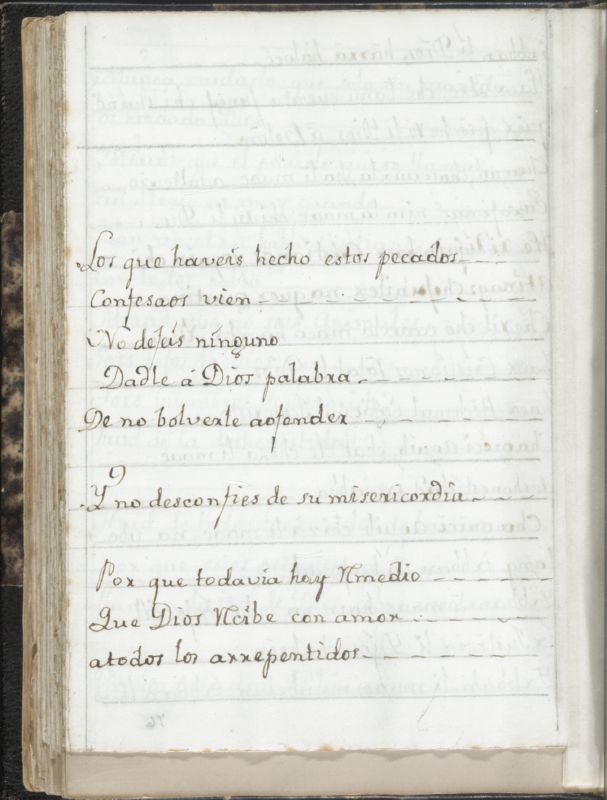 Los que haveis hecho estos pecados
Confesaos vien.
No dejeis ninguno
Dadle á Dios palabra
De no bolverle aofender
Y no desconfies de su misericordia
Por que todavia hay Remedio
Que Dios Recibe con amor
atodos los arrepentidos